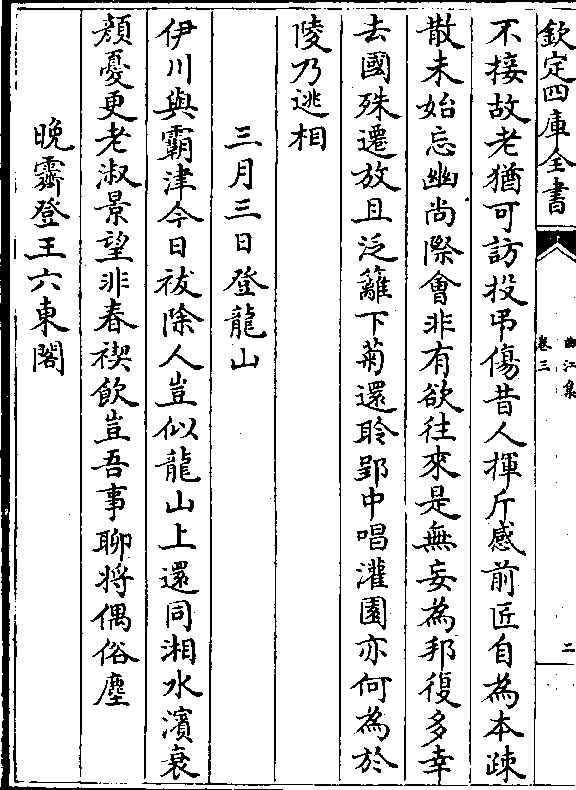 欽定四庫全書
曲江集
卷三
二
不接故老猶可訪投弔傷昔人揮斤感前匠自為本疎
散未始忘幽尚際會非有欲往來是無妄為邦復多幸
去國殊遷放且泛籬下菊還聆郢中唱灌園亦何為於
陵乃逃相
三月三日登龍山
伊川與霸津今日祓除人豈似龍山上還同湘水濱衰
顔憂更老淑景望非春禊飲豈吾事聊將偶俗塵
晚霽登王六東閣